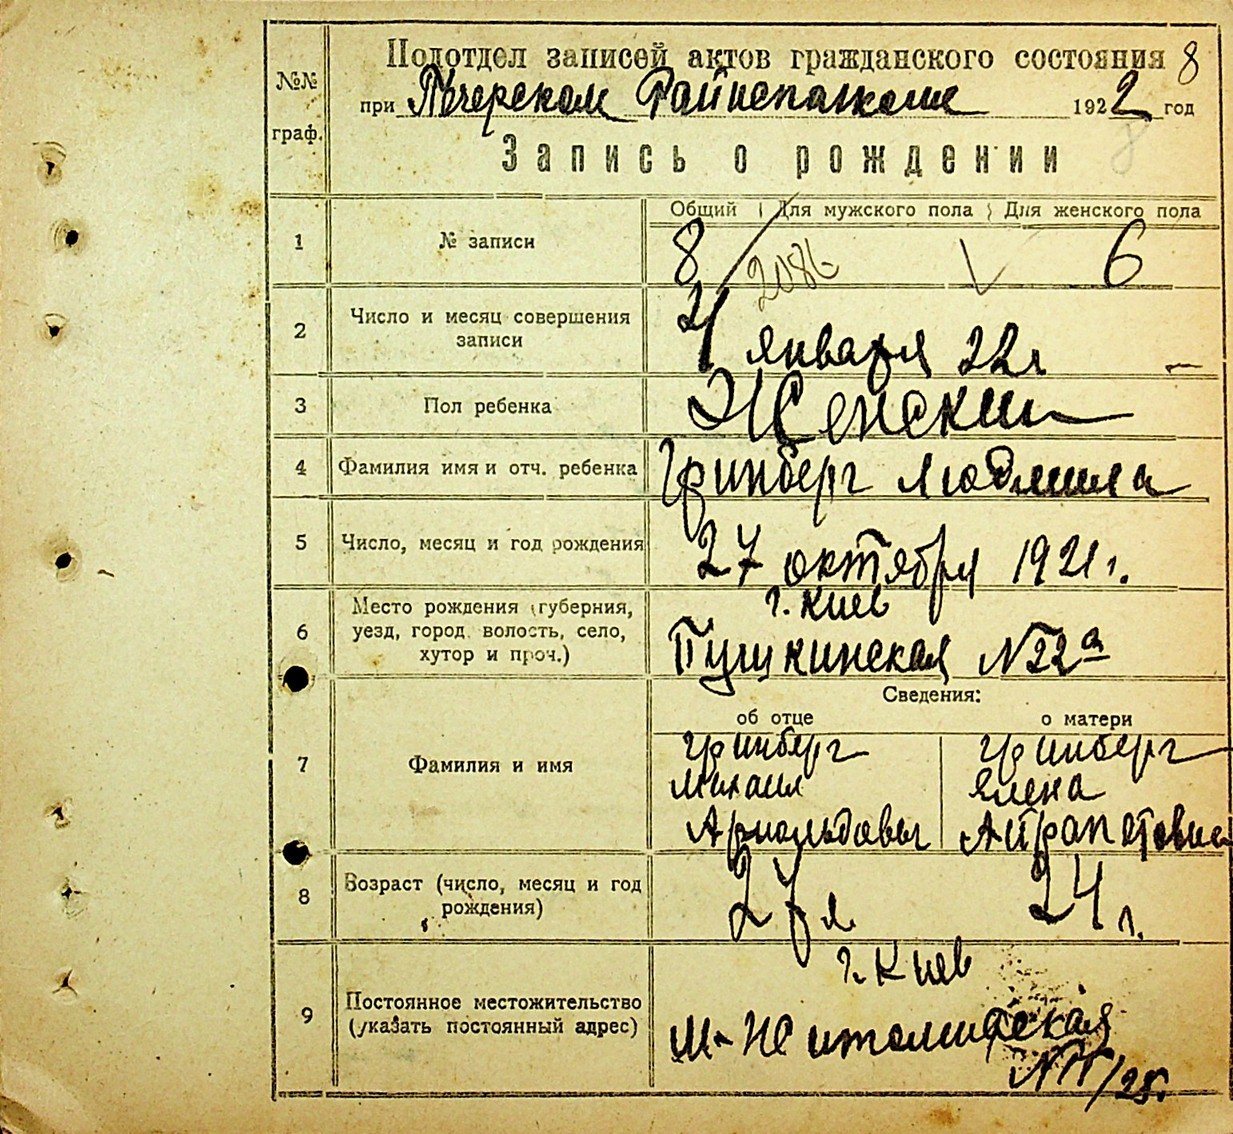 №№ граф.
Подотдел записей актов гражданского состояния 8
при Печерском 1922 год
8
Запись о рождении
Общий Для мужского пола Для женского пола
1 № записи 8 2086 6
2 Число и месяц совершения записи 4 января 22 г
3 Пол ребенка Женский
4 Фамилия имя и отч. ребенка Гринберг Людмила
5 Число, месяц и год рождения 27 октября 1921 г.
6 Место рождения (губерния, уезд, город волость, село, хутор и проч.) г. Киев
Пушкинская № 22а
Сведения:
об отце о матери
7 Фамилия и имя
Гринберг Гринберг
Михаил Елена
Арнольдович
8 Возраст (число, месяц и год рождения) 27 л 24 л.
9 Постоянное местожительство (указать постоянный адрес)
г. Киев
М-Житомирская
/25.